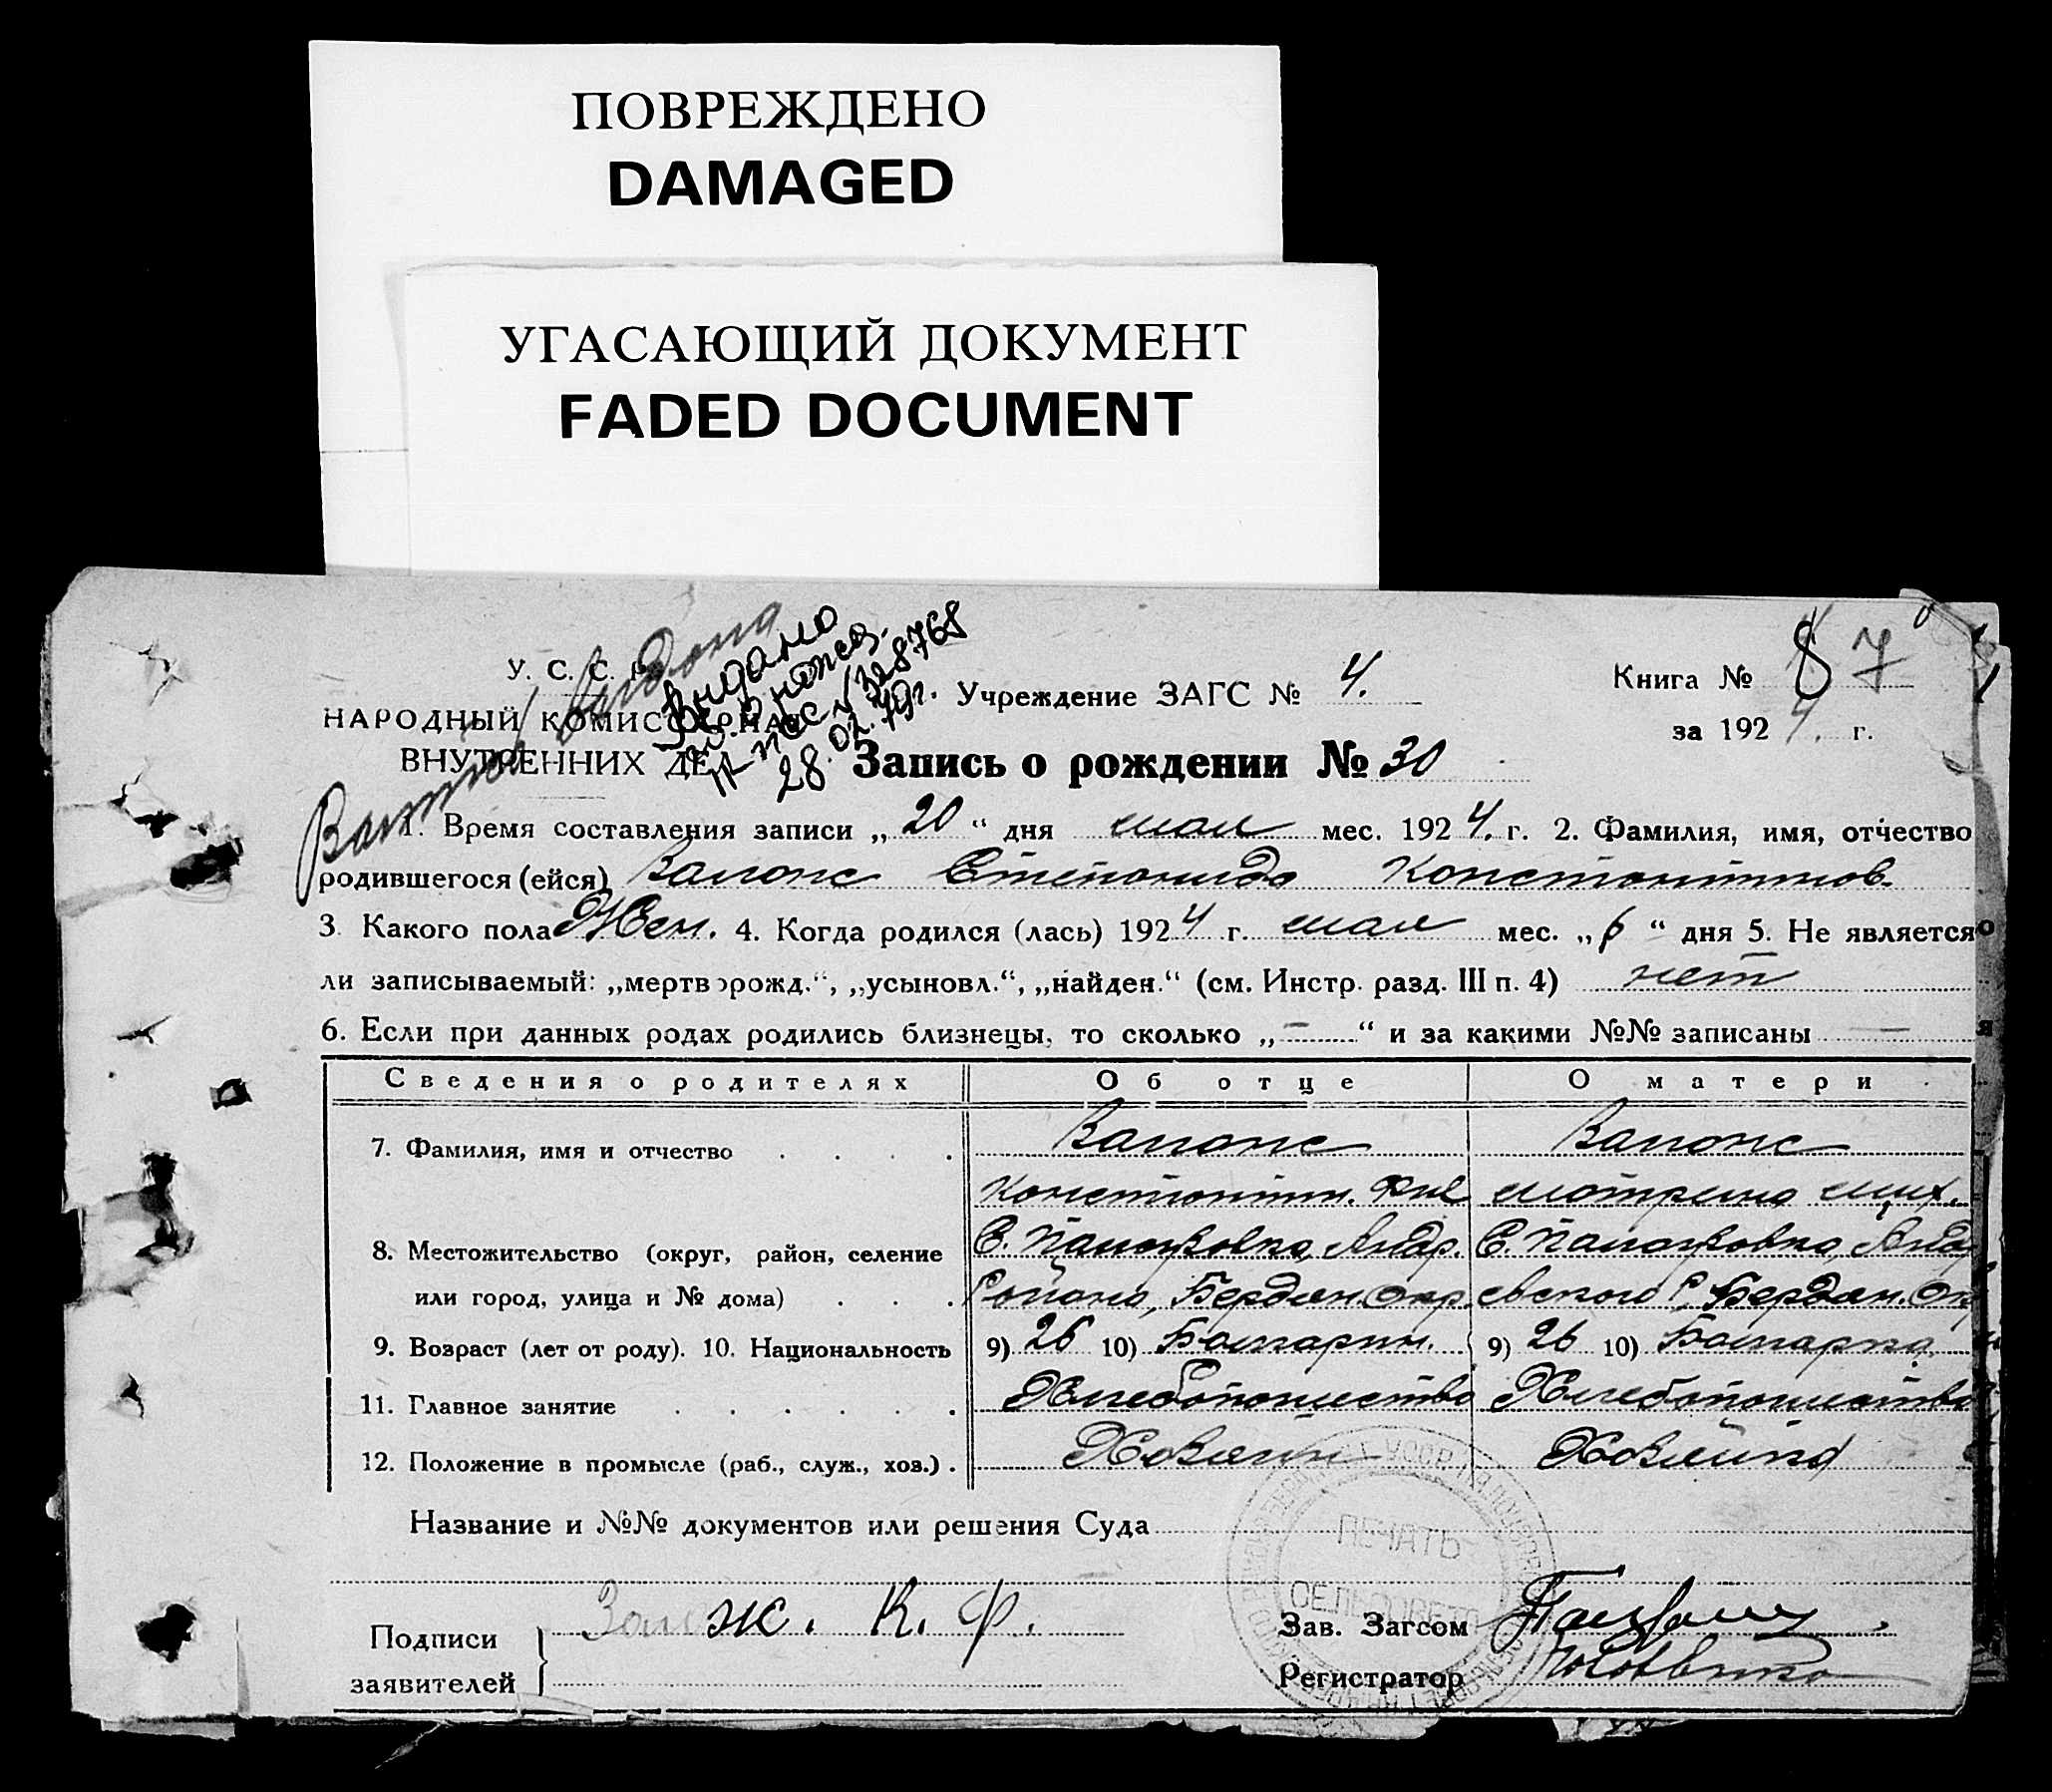 ПОВРЕЖДЕНО
DAMAGED
УГАСАЮЩИЙ ДОКУМЕНТ
FADED DOCUMENT
У. С. С. Р.
НАРОДНЫЙ КОМИССАРИАТ
ВНУТРЕННИХ ДЕЛ
видано
28.02.79г.
Учреждение ЗАГС № 4.
Книга № 8 7
за 1924. г.
Запись о рождении № 30
1. Время составления записи „20“ дня мая мес. 1924. г. 2. Фамилия, имя, отчество
родившегося (ейся) Степанида Константинов.
3. Какого пола Жен. 4. Когда родился (лась) 1924 г. мая мес. „6“ дня 5. Не является
ли записываемый: „мертворожд.“, „усыновл.“, „найден.“ (см. Инстр. разд. III п. 4) нет
6. Если при данных родах родились близнецы, то сколько „—“ и за какими №№ записаны —
Сведения о родителях Об отце О матери
7. Фамилия, имя и отчество . . . .
Константин. Матрена Мих.
8. Местожительство (округ, район, селение С. Андр. С.
или город, улица и № дома) . . . Района, Бердян. Окр. евского Р. Бердян. Окр
9. Возраст (лет от роду). 10. Национальность 9) 26 10) Болгарин. 9) 26 10) Болгарка
11. Главное занятие . . . . . . Хлебопашество Хлебопашество
12. Положение в промысле (раб., служ., хоз.) . Хозяин Хозяйка
Название и №№ документов или решения Суда
ПЕЧАТЬ
СЕЛЬСОВЕТА
Подписи
заявителей
К. Ф.
Зав. Загсом
Регистратор